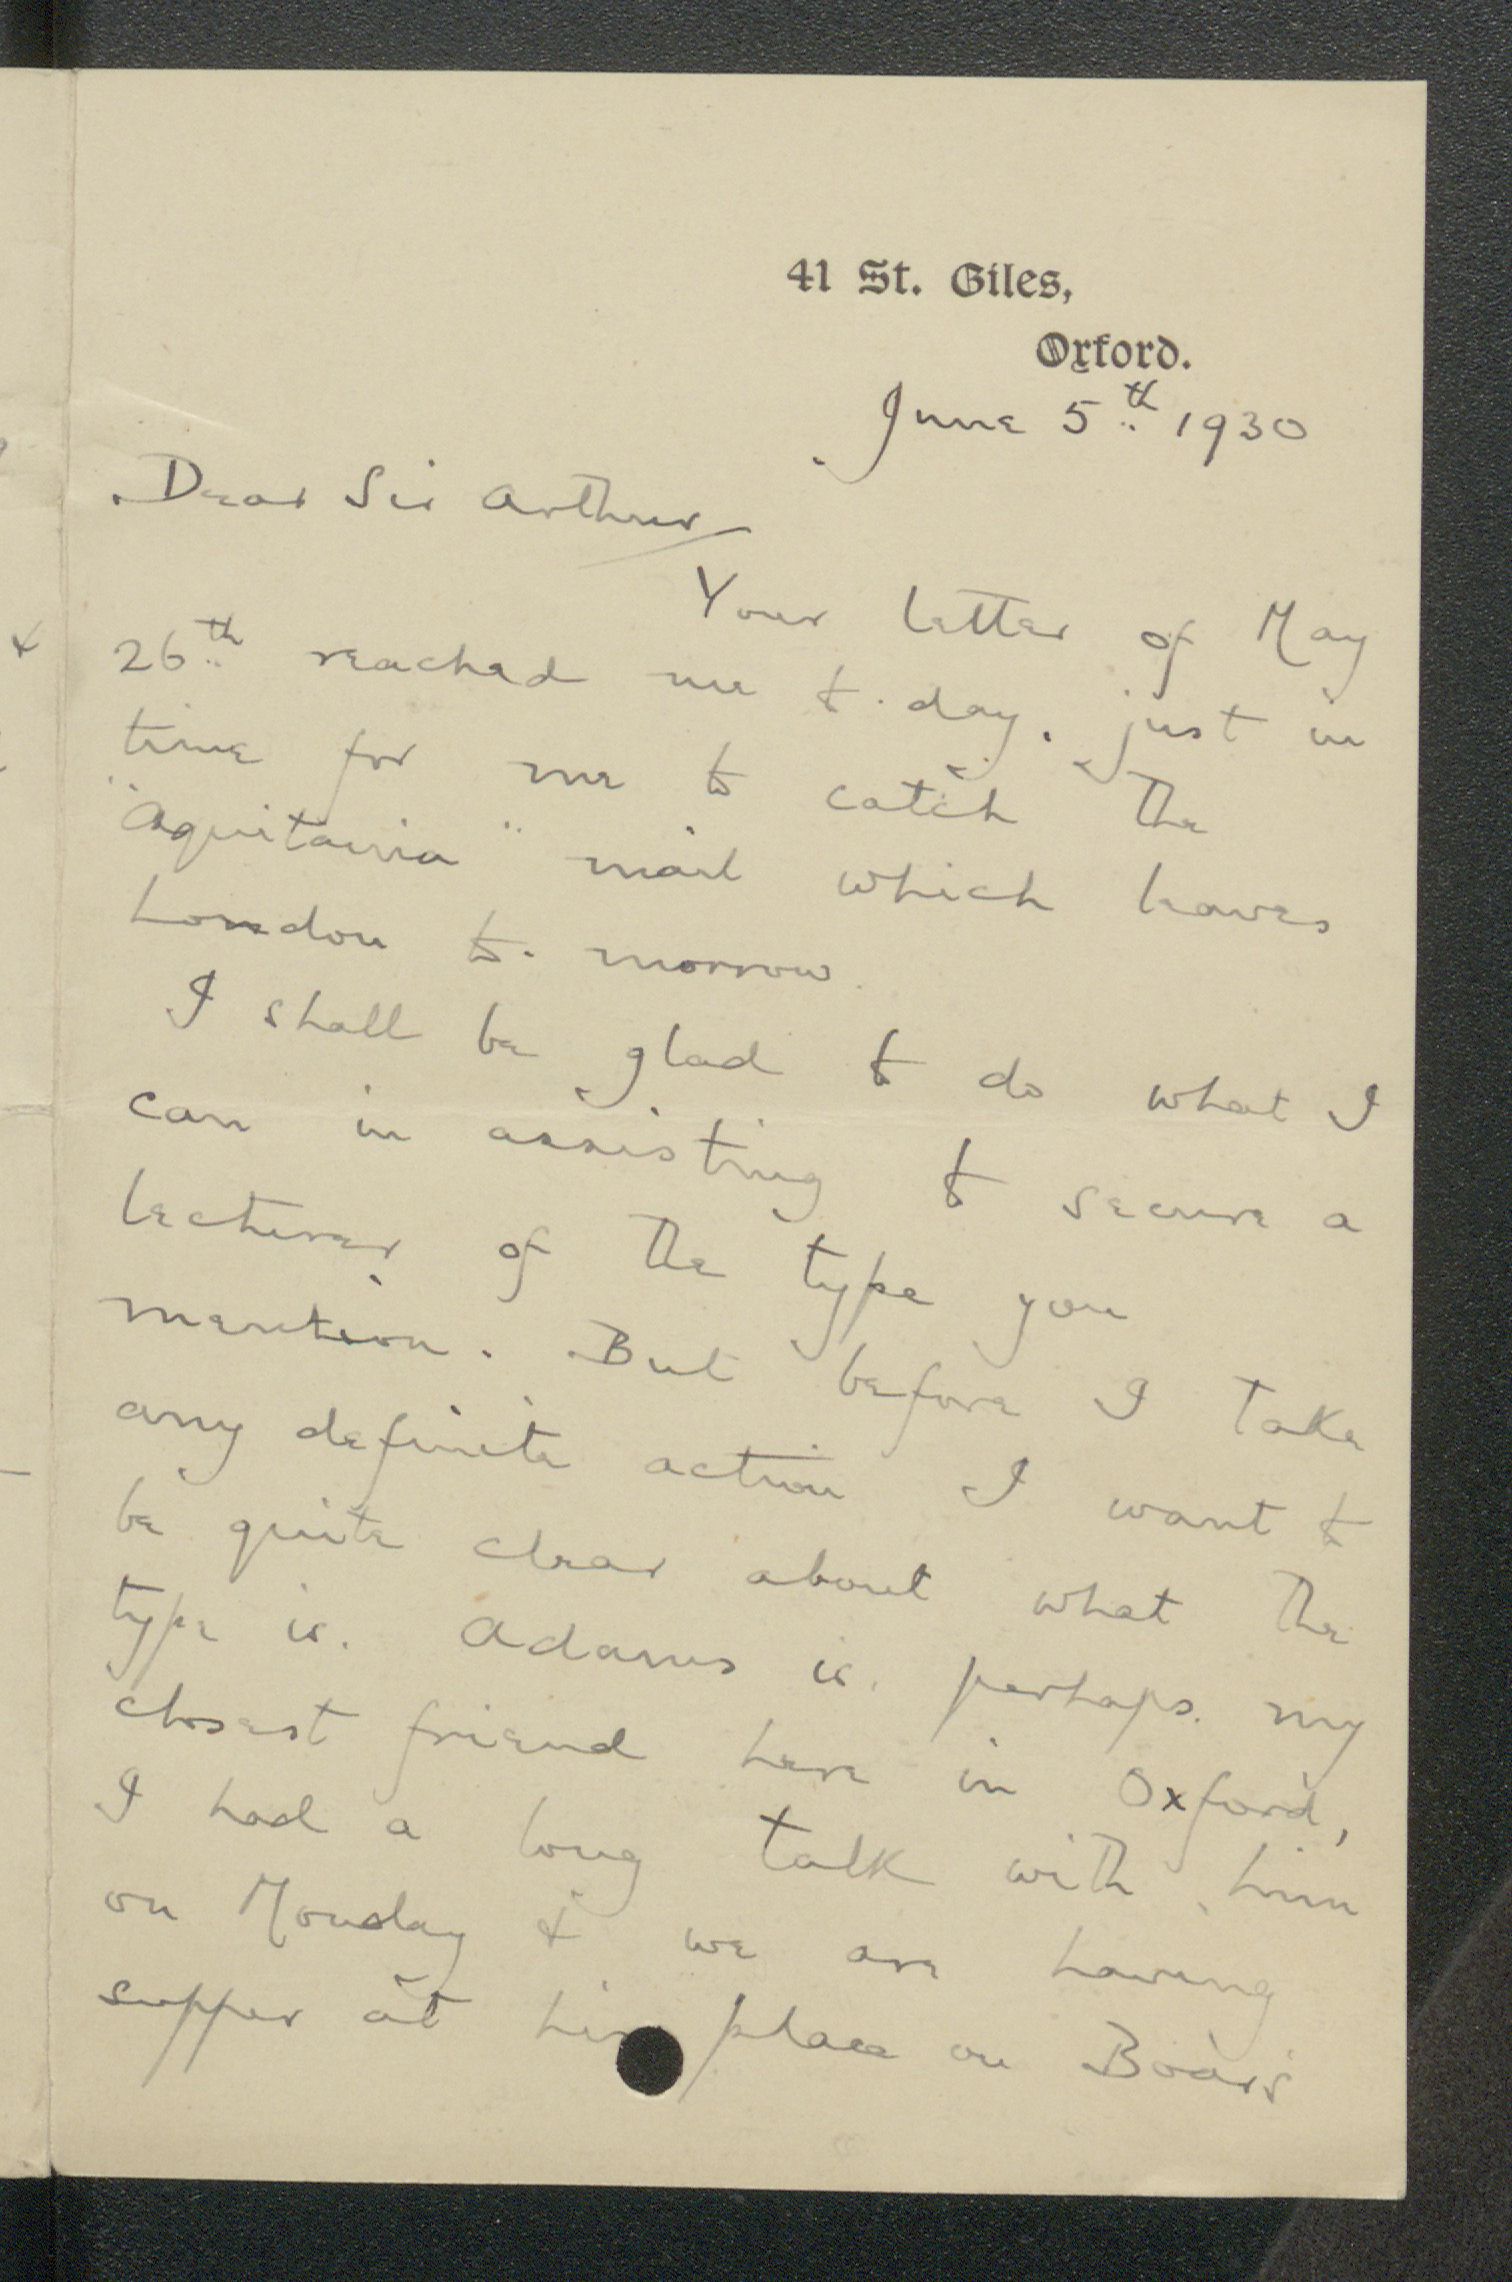 41 St. Giles,
Oxford.
June 5th 1930
Dear Sir Arthur
Your letter of May
26th reached me to-day, just in
time for me to catch the
"Aquitania" mail which leaves
London to-morrow.
I shall be glad to do what I
can in assisting to secure a
lecturer of the type you
mention. But before I take
any definite action I want to
be quite clear about what the
type is. Adams is perhaps my
closest friend here in Oxford,
I had a long talk with him
on Monday & we are having
supper at his place on Boars
&